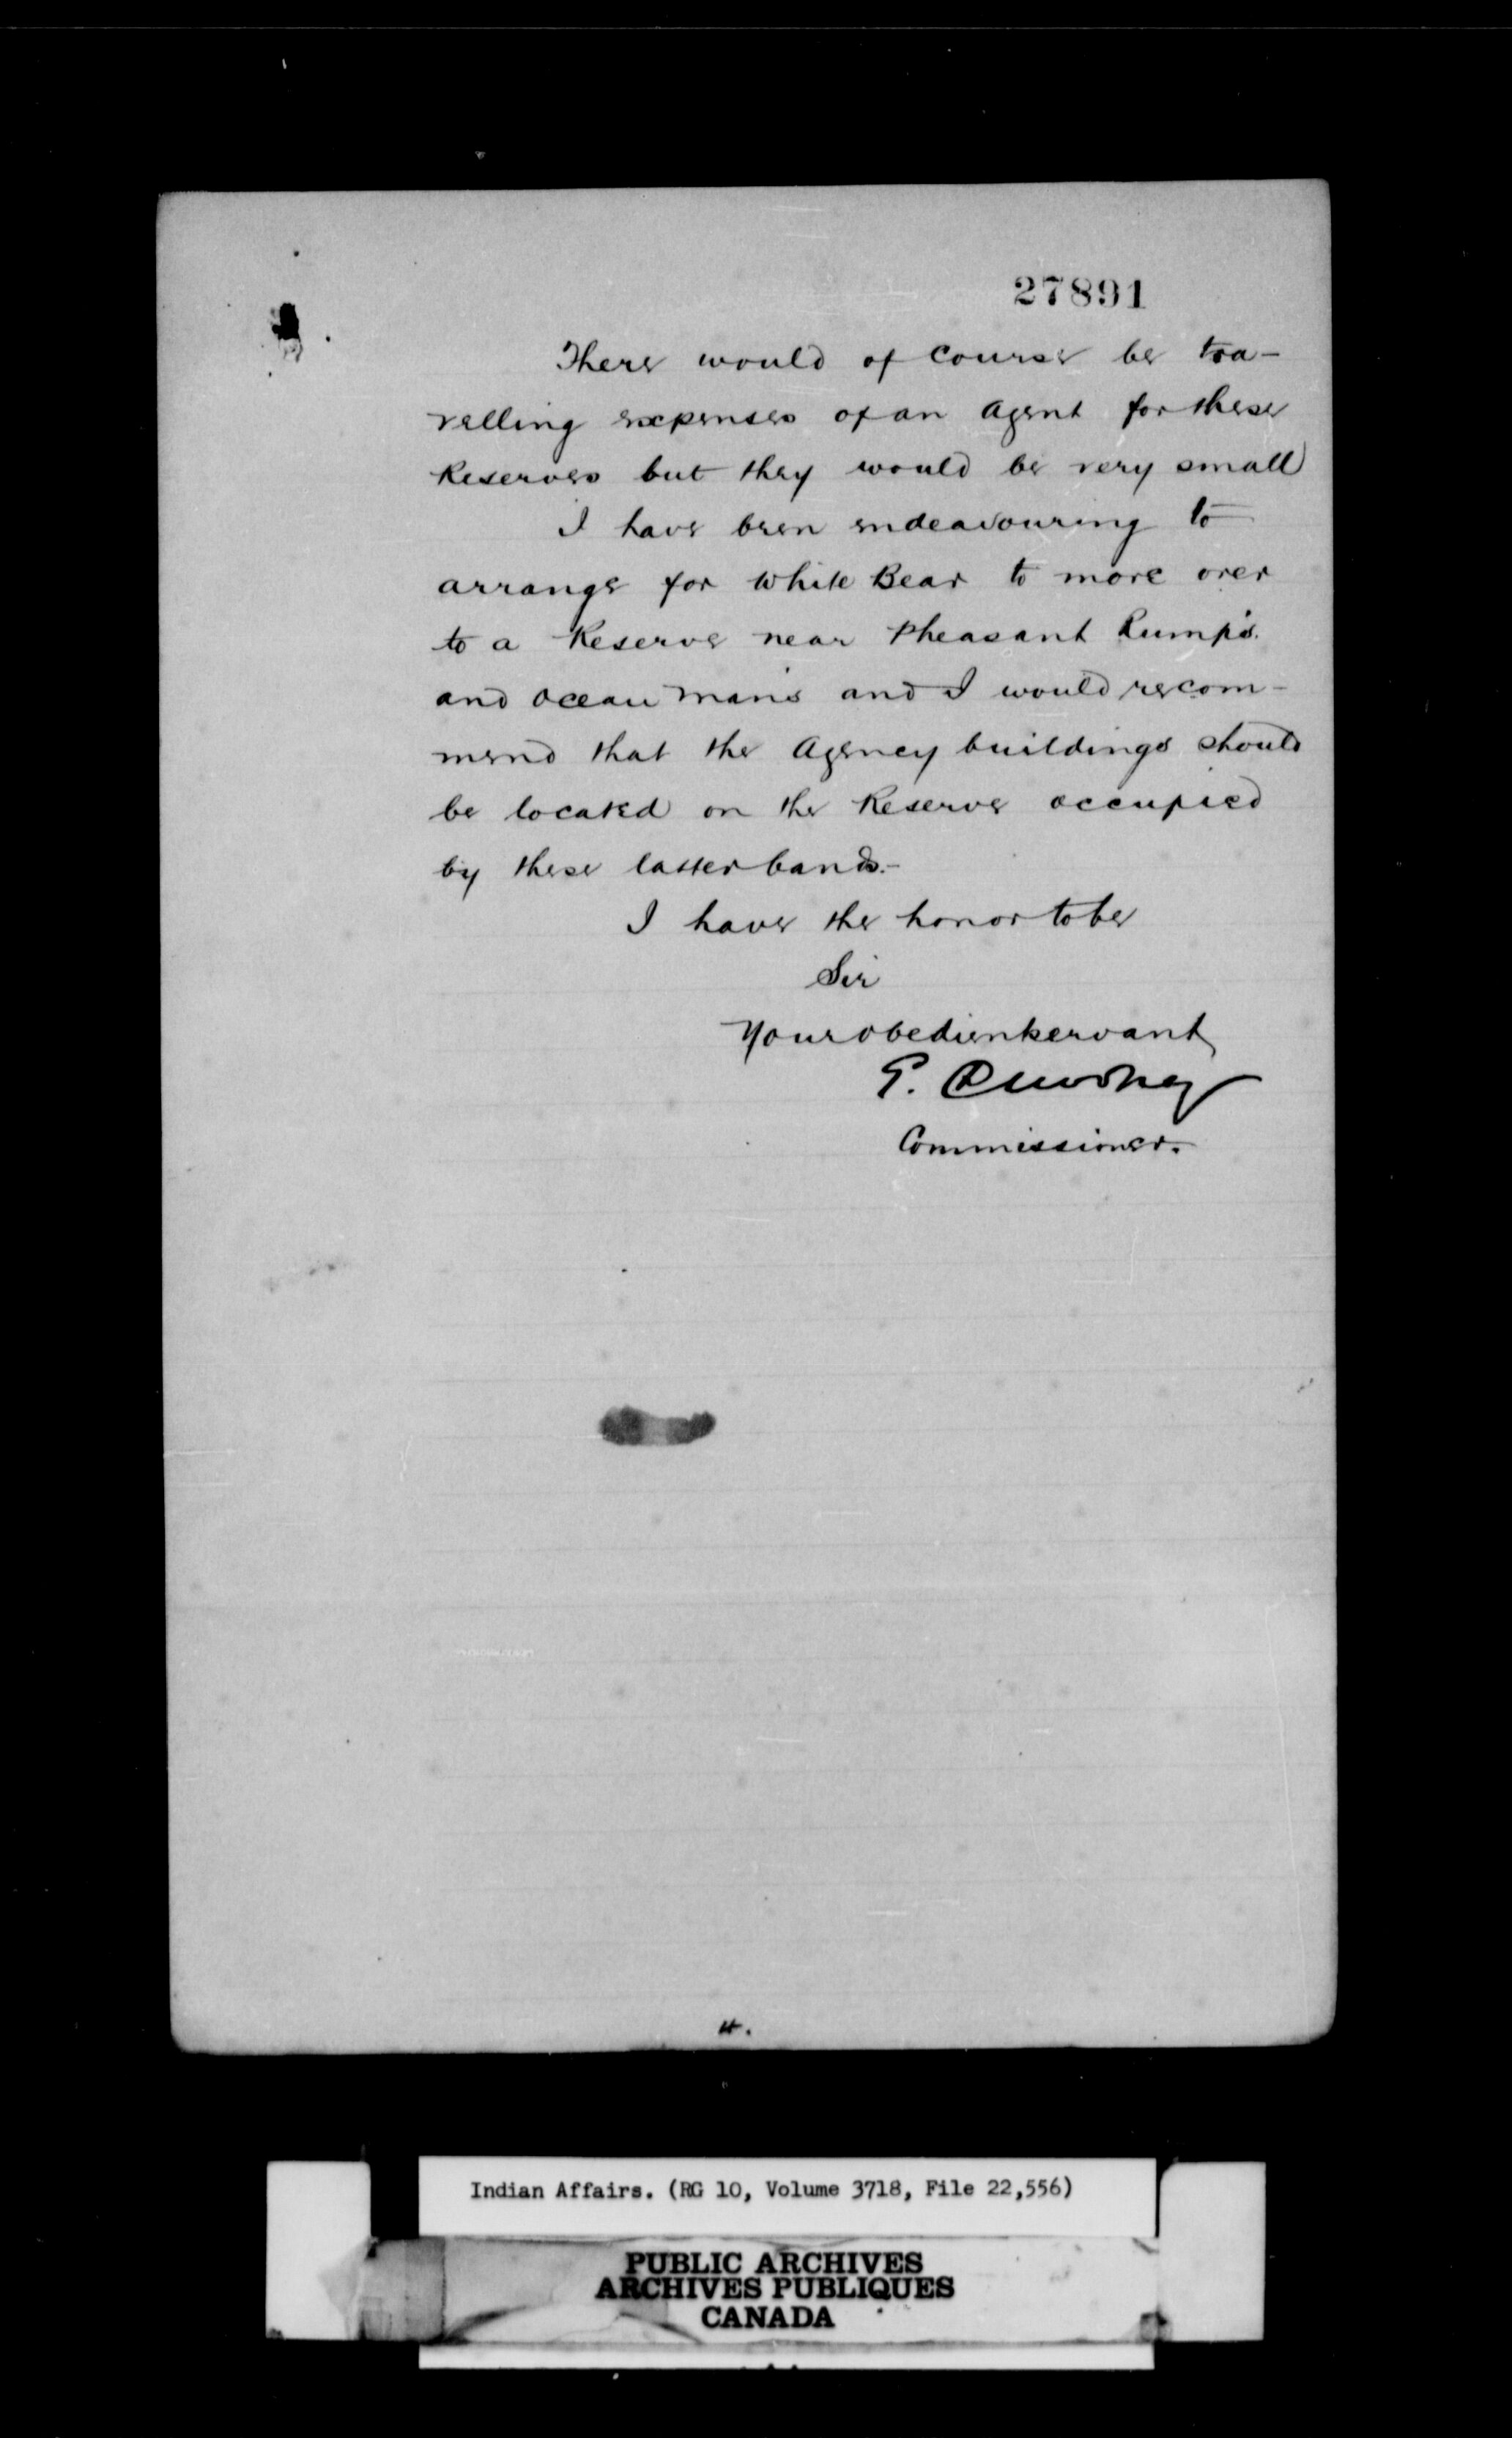 27891
There would of course be tra-
velling expenses of an Agent for these
Reserves but they would be very small
I have been endeavouring to
arrange for White Bear to move over
to a Reserve near Pheasant Rump's
and Ocean Man's and I would recom-
mend that the Agency buildings should
be located on the Reserve occupied
by these latter bands.-
I have the honor to be
Sir
Your obedient servant
E. Dewdney
Commissioner.
4.
Indian Affairs. (RG 10, Volume 3718, File 22,556)
PUBLIC ARCHIVES
ARCHIVES PUBLIQUES
CANADA